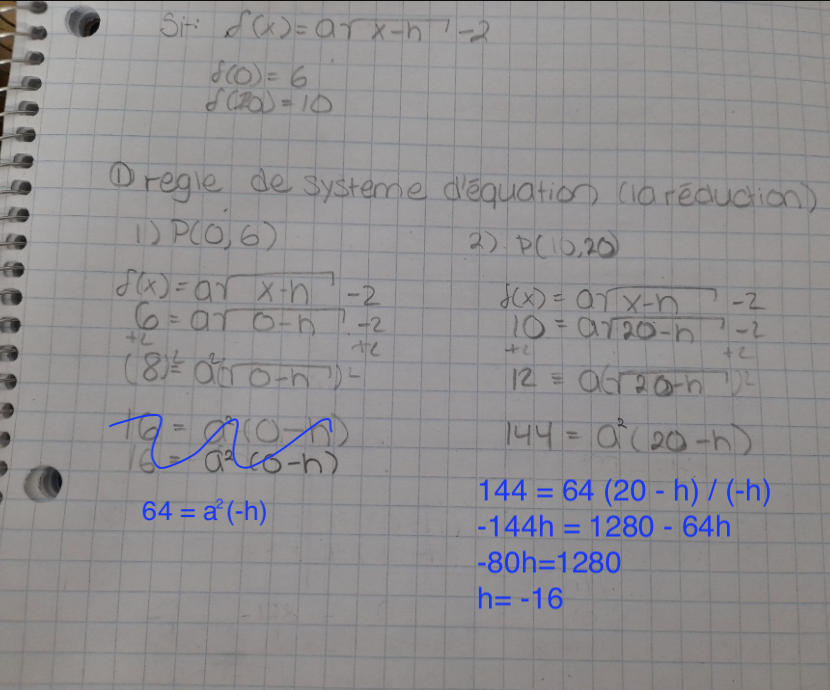 Sit: f(x)= a√x-h -2
f(0)= 6
f(20)= 10
① regle de systeme d'équation (la réduction)
1) P(0,6)
f(x)= a√x-h -2
6 = a√0-h -2
+2 +2
(8)²= a²(√0-h)²
16 = a²(0-h)
16 = a²(0-h)
64 = a²(-h)
2) P(10,20)
f(x)= a√x-h -2
10 = a√20-h -2
+2 +2
12 = a(√20-h)²
144 = a²(20-h)
144 = 64 (20 - h) / (-h)
-144h = 1280 - 64h
-80h=1280
h= -16